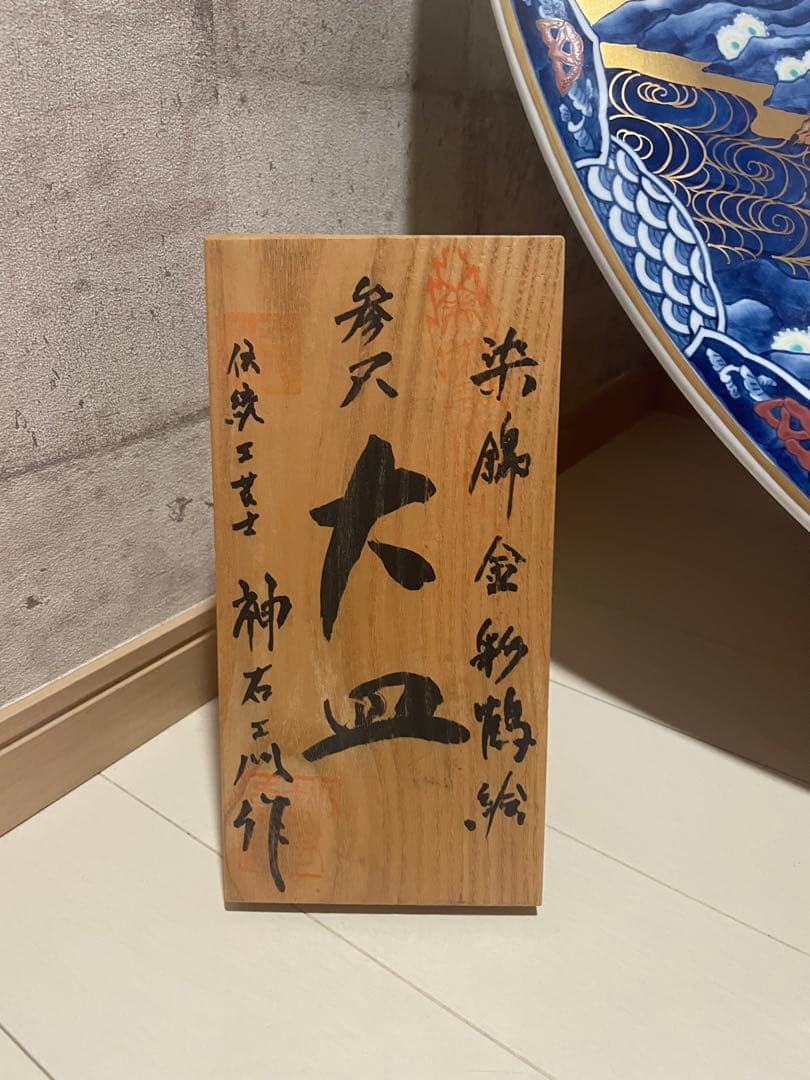 染錦金彩鶴絵
参尺
大皿
伝統工芸士
神右エ川作